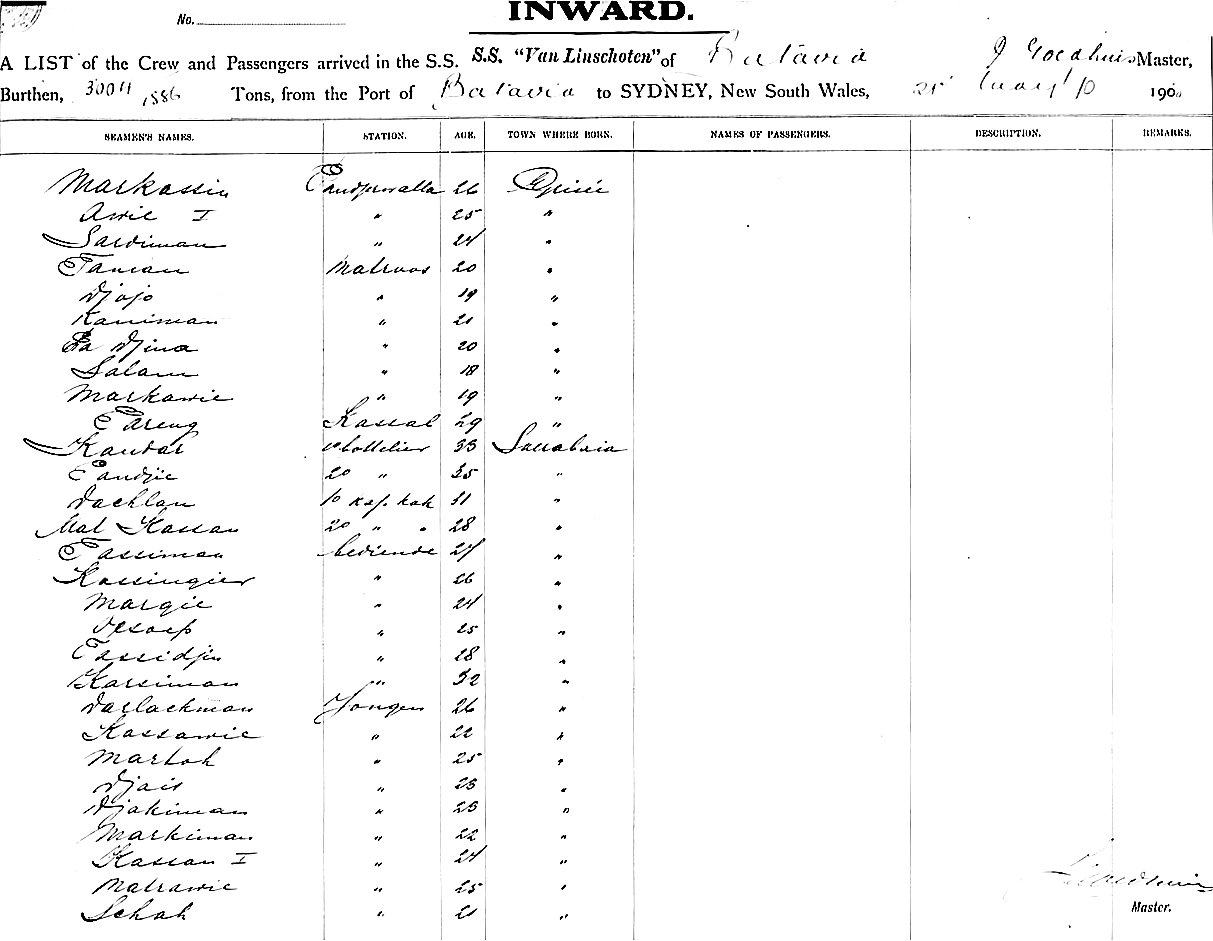 No.
INWARD.
A LIST of the Crew and Passengers arrived in the S.S. S.S. "Van Linschoten" of Batavia J Goedhuis Master,
Burthen, 3004 1886 Tons, from the Port of Batavia to SYDNEY, New South Wales, 190
SEAMEN'S NAMES. STATION. AGE. TOWN WHERE BORN. NAMES OF PASSENGERS. DESCRIPTION. REMARKS.
Markassin 26 Grisée
Awie I " 25 "
Sardiman " 24 "
Taman Matroos 20 "
Djojo " 19 "
Kaniman " 21 "
Pa Djina " 20 "
Salam " 18 "
Markawie " 19 "
Pareng Kassab 29 "
Kandar bottelier 33 Soerabaia
Pandjie 20 " 35 "
Dachlan 10 kaj. kok 31 "
Mat Hassan 20 " " 28 "
Tassiman bediende 27 "
Kassingier " 26 "
Margie " 24 "
Oesoep " 25 "
Tassidjn " 28 "
Karsiman " 32 "
Darlackman Jongen 26 "
Kassawie " 22 "
Martok " 25 "
Djais " 23 "
Djakiman " 23 "
Markiman " 22 "
Hassan I " 24 "
Matrawie " 25 "
Schah " 21 "
Goedhuis
Master.